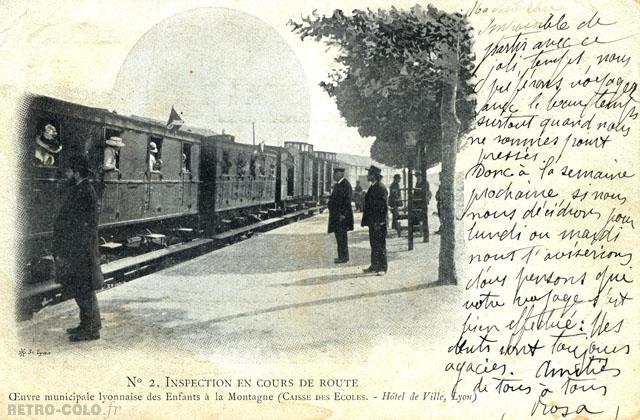 Impossible de
partir avec ce
joli temps, nous
préférons voyager
avec le beau temps
surtout quand nous
ne sommes point
pressés.
Donc à la semaine
prochaine si nous
nous décidons pour
lundi ou mardi
nous t'aviserions
nous pensons que
votre voyage s'est
bien effectué. Mes
dents sont toujours
agacées. Amitiés
de tous à tous
Rosa
No 2. INSPECTION EN COURS DE ROUTE
Œuvre municipale lyonnaise des Enfants à la Montagne (CAISSE DES ECOLES. - Hôtel de Ville, Lyon)
RETRO-COLO.fr